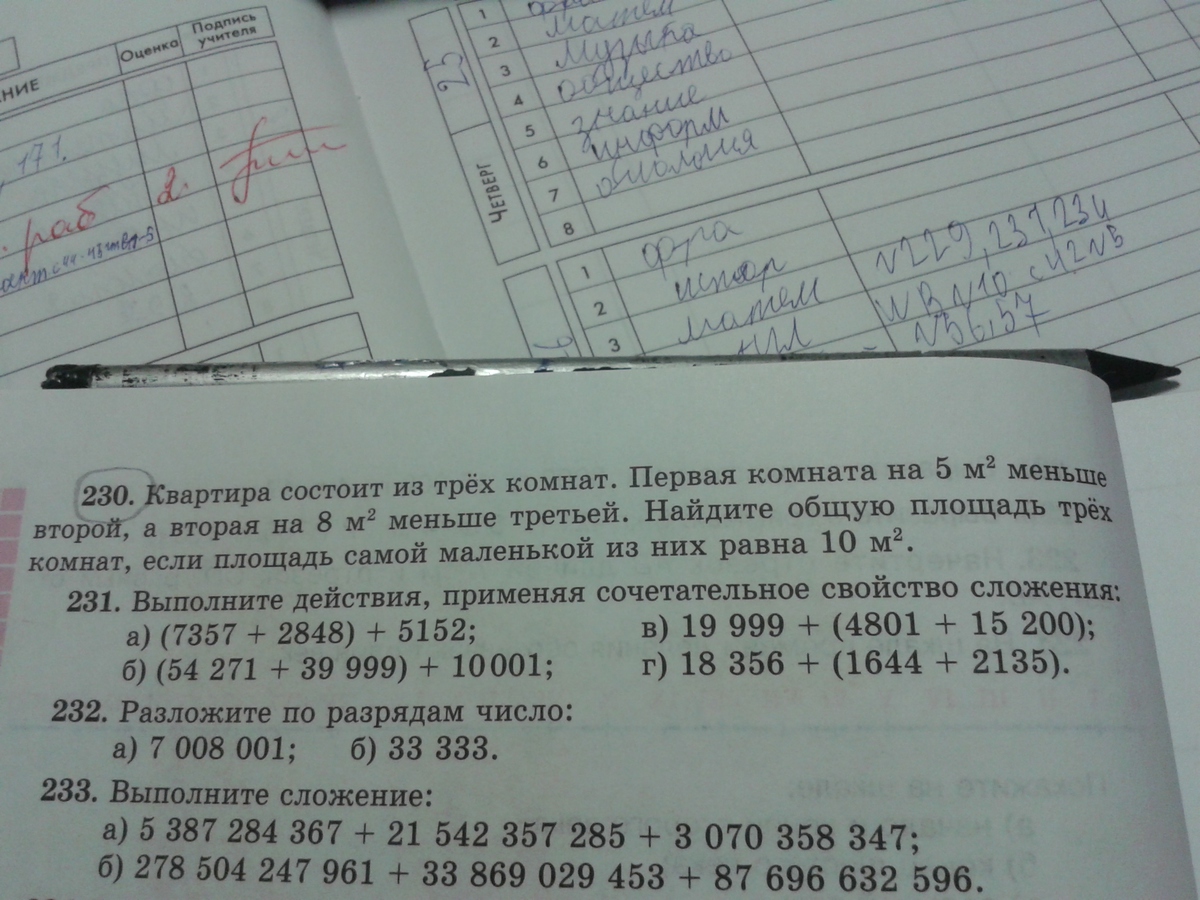 НИЕ
Оценка
Подпись
учителя
171.
раб
2
25
ЧЕТВЕРГ
1
2 матем
3 музыка
4 общество
5 знание
6 информ
7 биология
8
1 фра
2 истор
3 матем
N229,231,234
N56,57
230. Квартира состоит из трёх комнат. Первая комната на 5 м² меньше
второй, а вторая на 8 м² меньше третьей. Найдите общую площадь трёх
комнат, если площадь самой маленькой из них равна 10 м².
231. Выполните действия, применяя сочетательное свойство сложения:
а) (7357 + 2848) + 5152; в) 19 999 + (4801 + 15 200);
б) (54 271 + 39 999) + 10 001; г) 18 356 + (1644 + 2135).
232. Разложите по разрядам число:
а) 7 008 001; б) 33 333.
233. Выполните сложение:
а) 5 387 284 367 + 21 542 357 285 + 3 070 358 347;
б) 278 504 247 961 + 33 869 029 453 + 87 696 632 596.